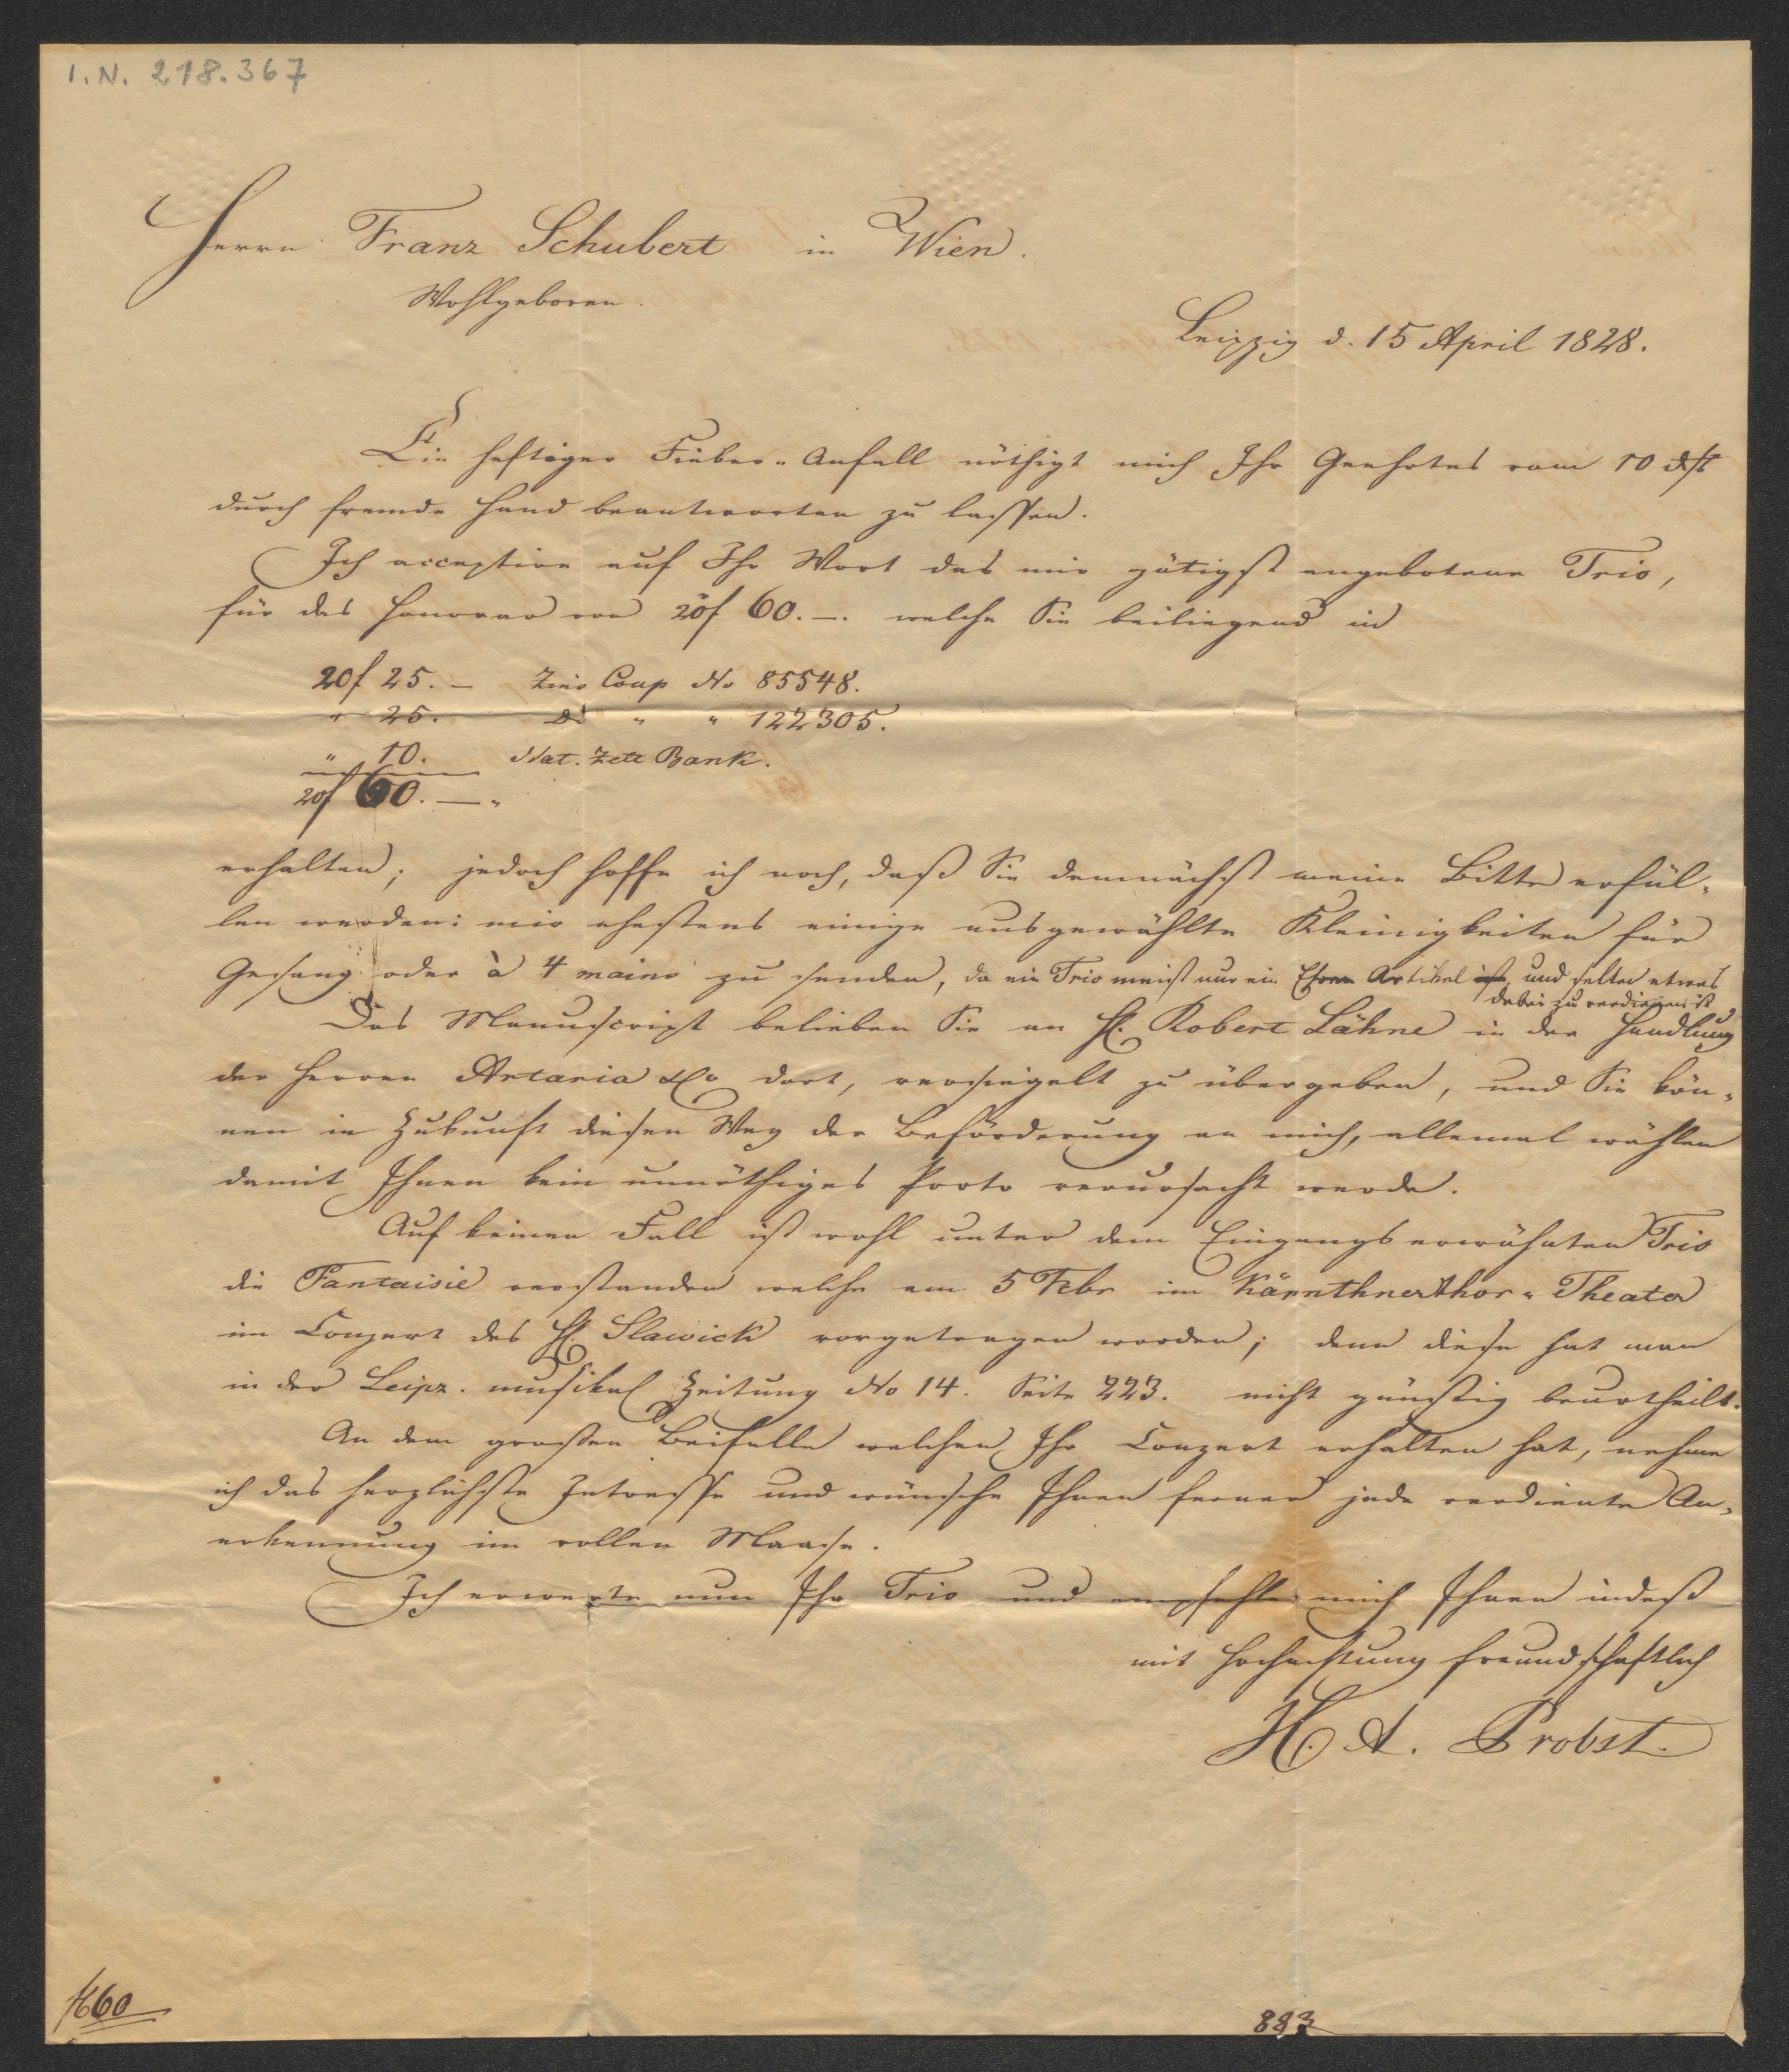 I. N. 218.367
Herrn Franz Schubert in Wien.
Wohlgeboren.
Leipzig d. 15 April 1828.
Ein heftiger Fieber-Anfall nöthigt mich Ihr Geehrtes vom 10 dſſ
durch fremde Hand beantworten zu lassen.
Ich acceptire auf Ihr Wort das mir gütigst angebotene Trio,
für das Honorar von 20f 60.—. welche Sie beiliegend in
20f 25.— Zins Coup No 85548.
" 25. do " " 122305.
" 10. Nat. Zett Bank.
20f 60.—"
erhalten; jedoch hoffe ich noch, daß Sie demnächst meine Bitte erfül-
len werden: mir ehestens einige ausgewählte Kleinigkeiten für
Gesang oder à 4 mains zu senden, da ein Trio meist nur ein Ehren Artikel ist, und selten etwas
dabei zu verdienen ist
Das Manuscript belieben Sie an H. Robert Lähne in der Handlung
der Herren Artaria & Co dort, versiegelt zu übergeben, und Sie kön-
nen in Zukunft diesen Weg der Beförderung an mich, allemal wählen
damit Ihnen kein unnöthiges Porto verursacht werde.
Auf keinen Fall ist wohl unter dem Eingangs erwähnten Trio
die Fantaisie verstanden welche am 5 Febr im Kärnthnerthor-Theater
im Conzert des H. Slawick vorgetragen worden; denn diese hat man
in der Leipz. musikal Zeitung No 14. Seite 223. nicht günstig beurtheilt.
An dem großen Beifalle welchen Ihr Conzert erhalten hat, nehme
ich das herzlichste Intresse und wünsche Ihnen ferner jede verdiente An-
erkennung im vollen Maase.
Ich erwarte nun Ihr Trio und empfehle mich Ihnen indeß
mit Hochachtung freundschaftlich
H. A. Probst.
f60
883